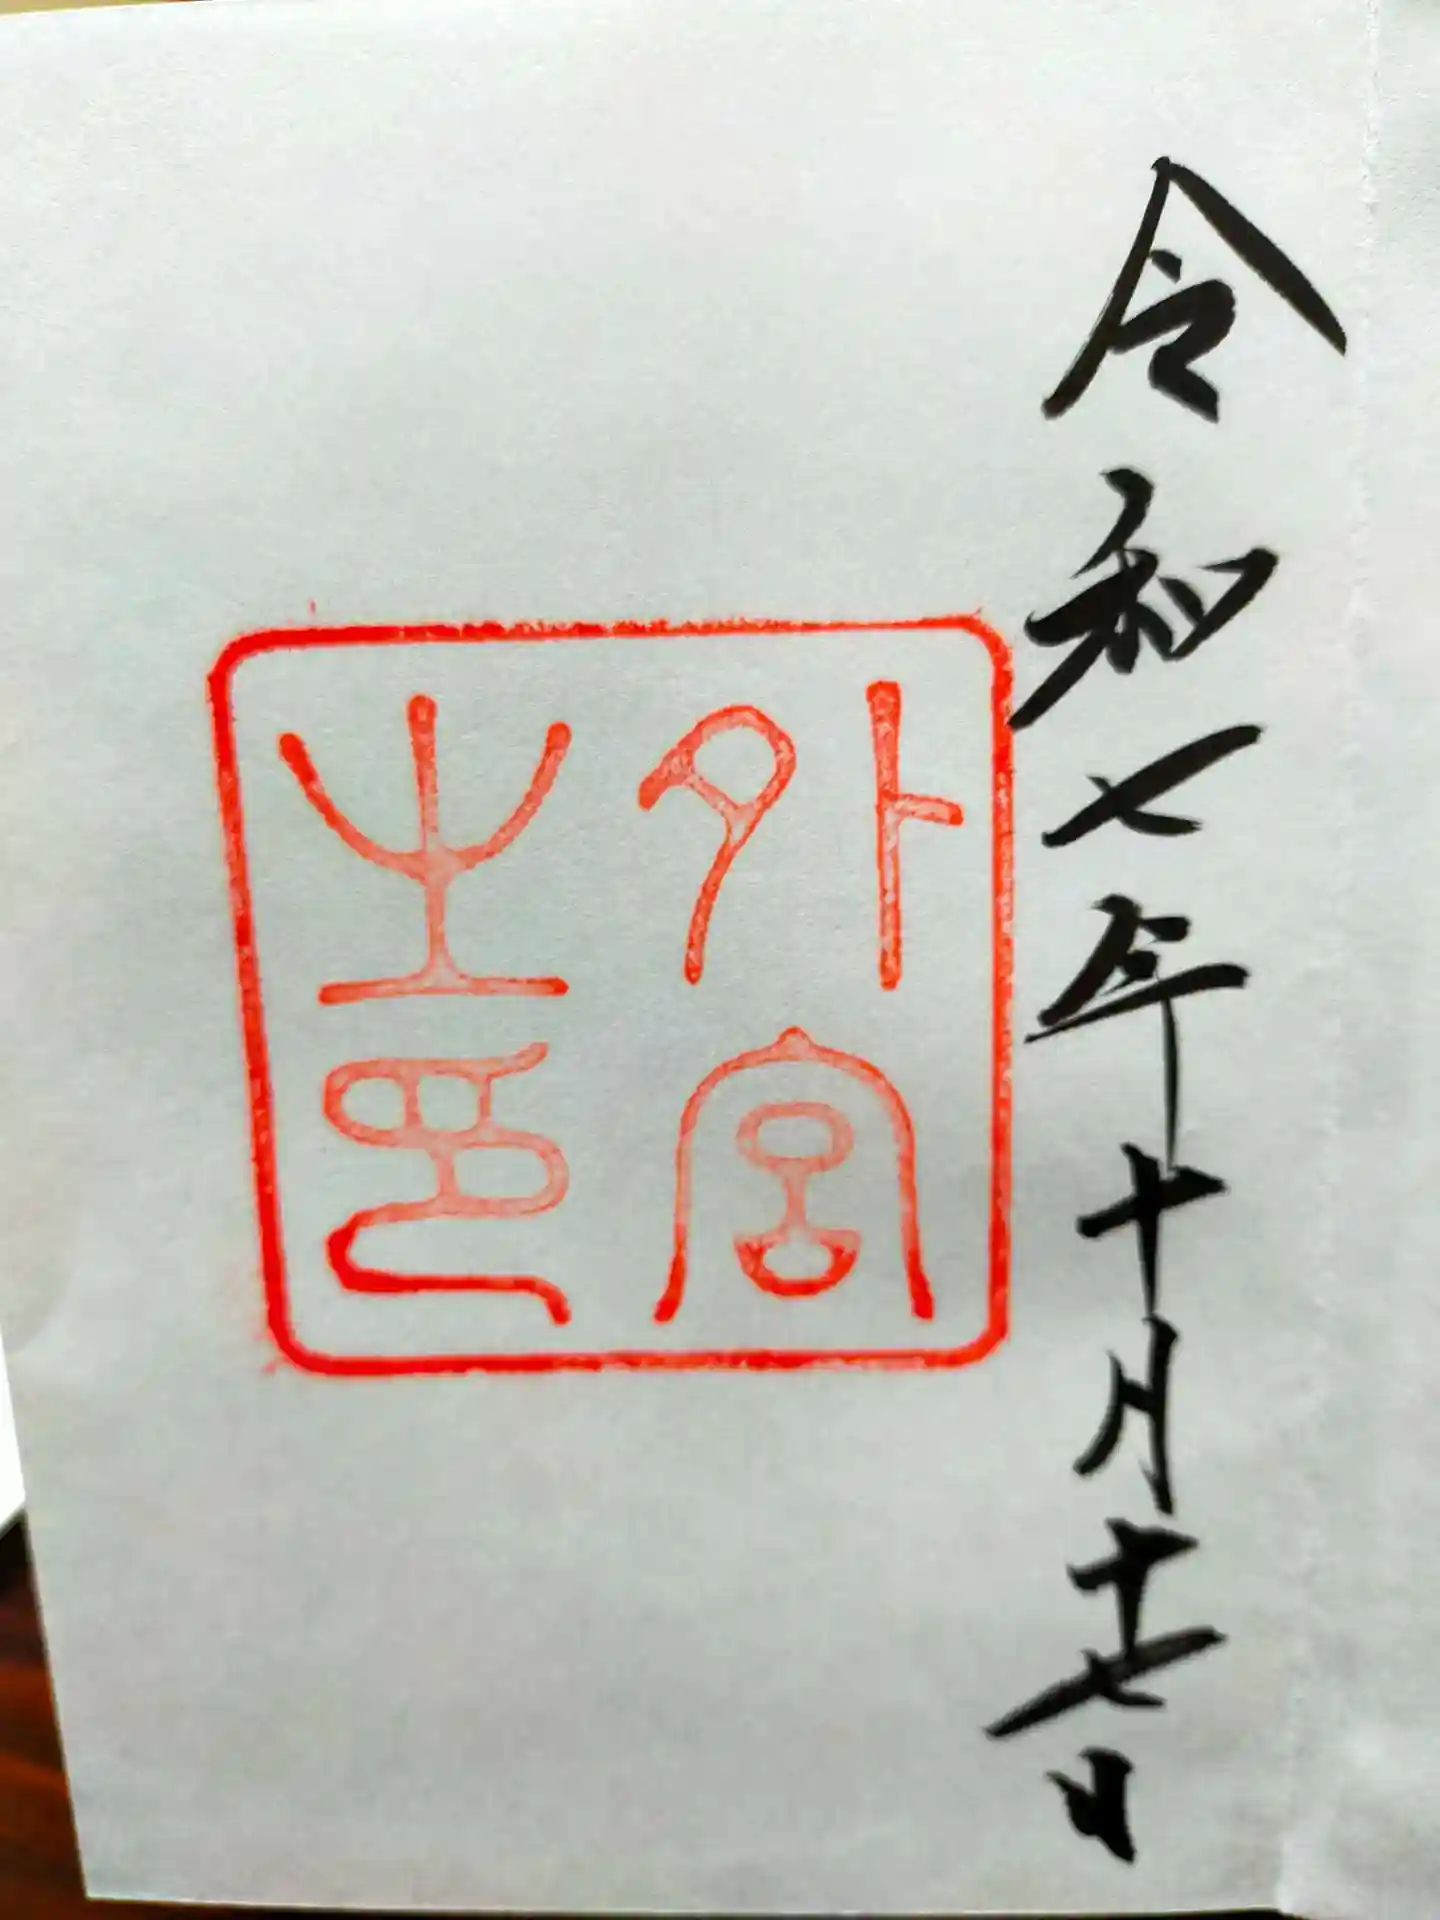 令和七年十月十七日
外宮
之印